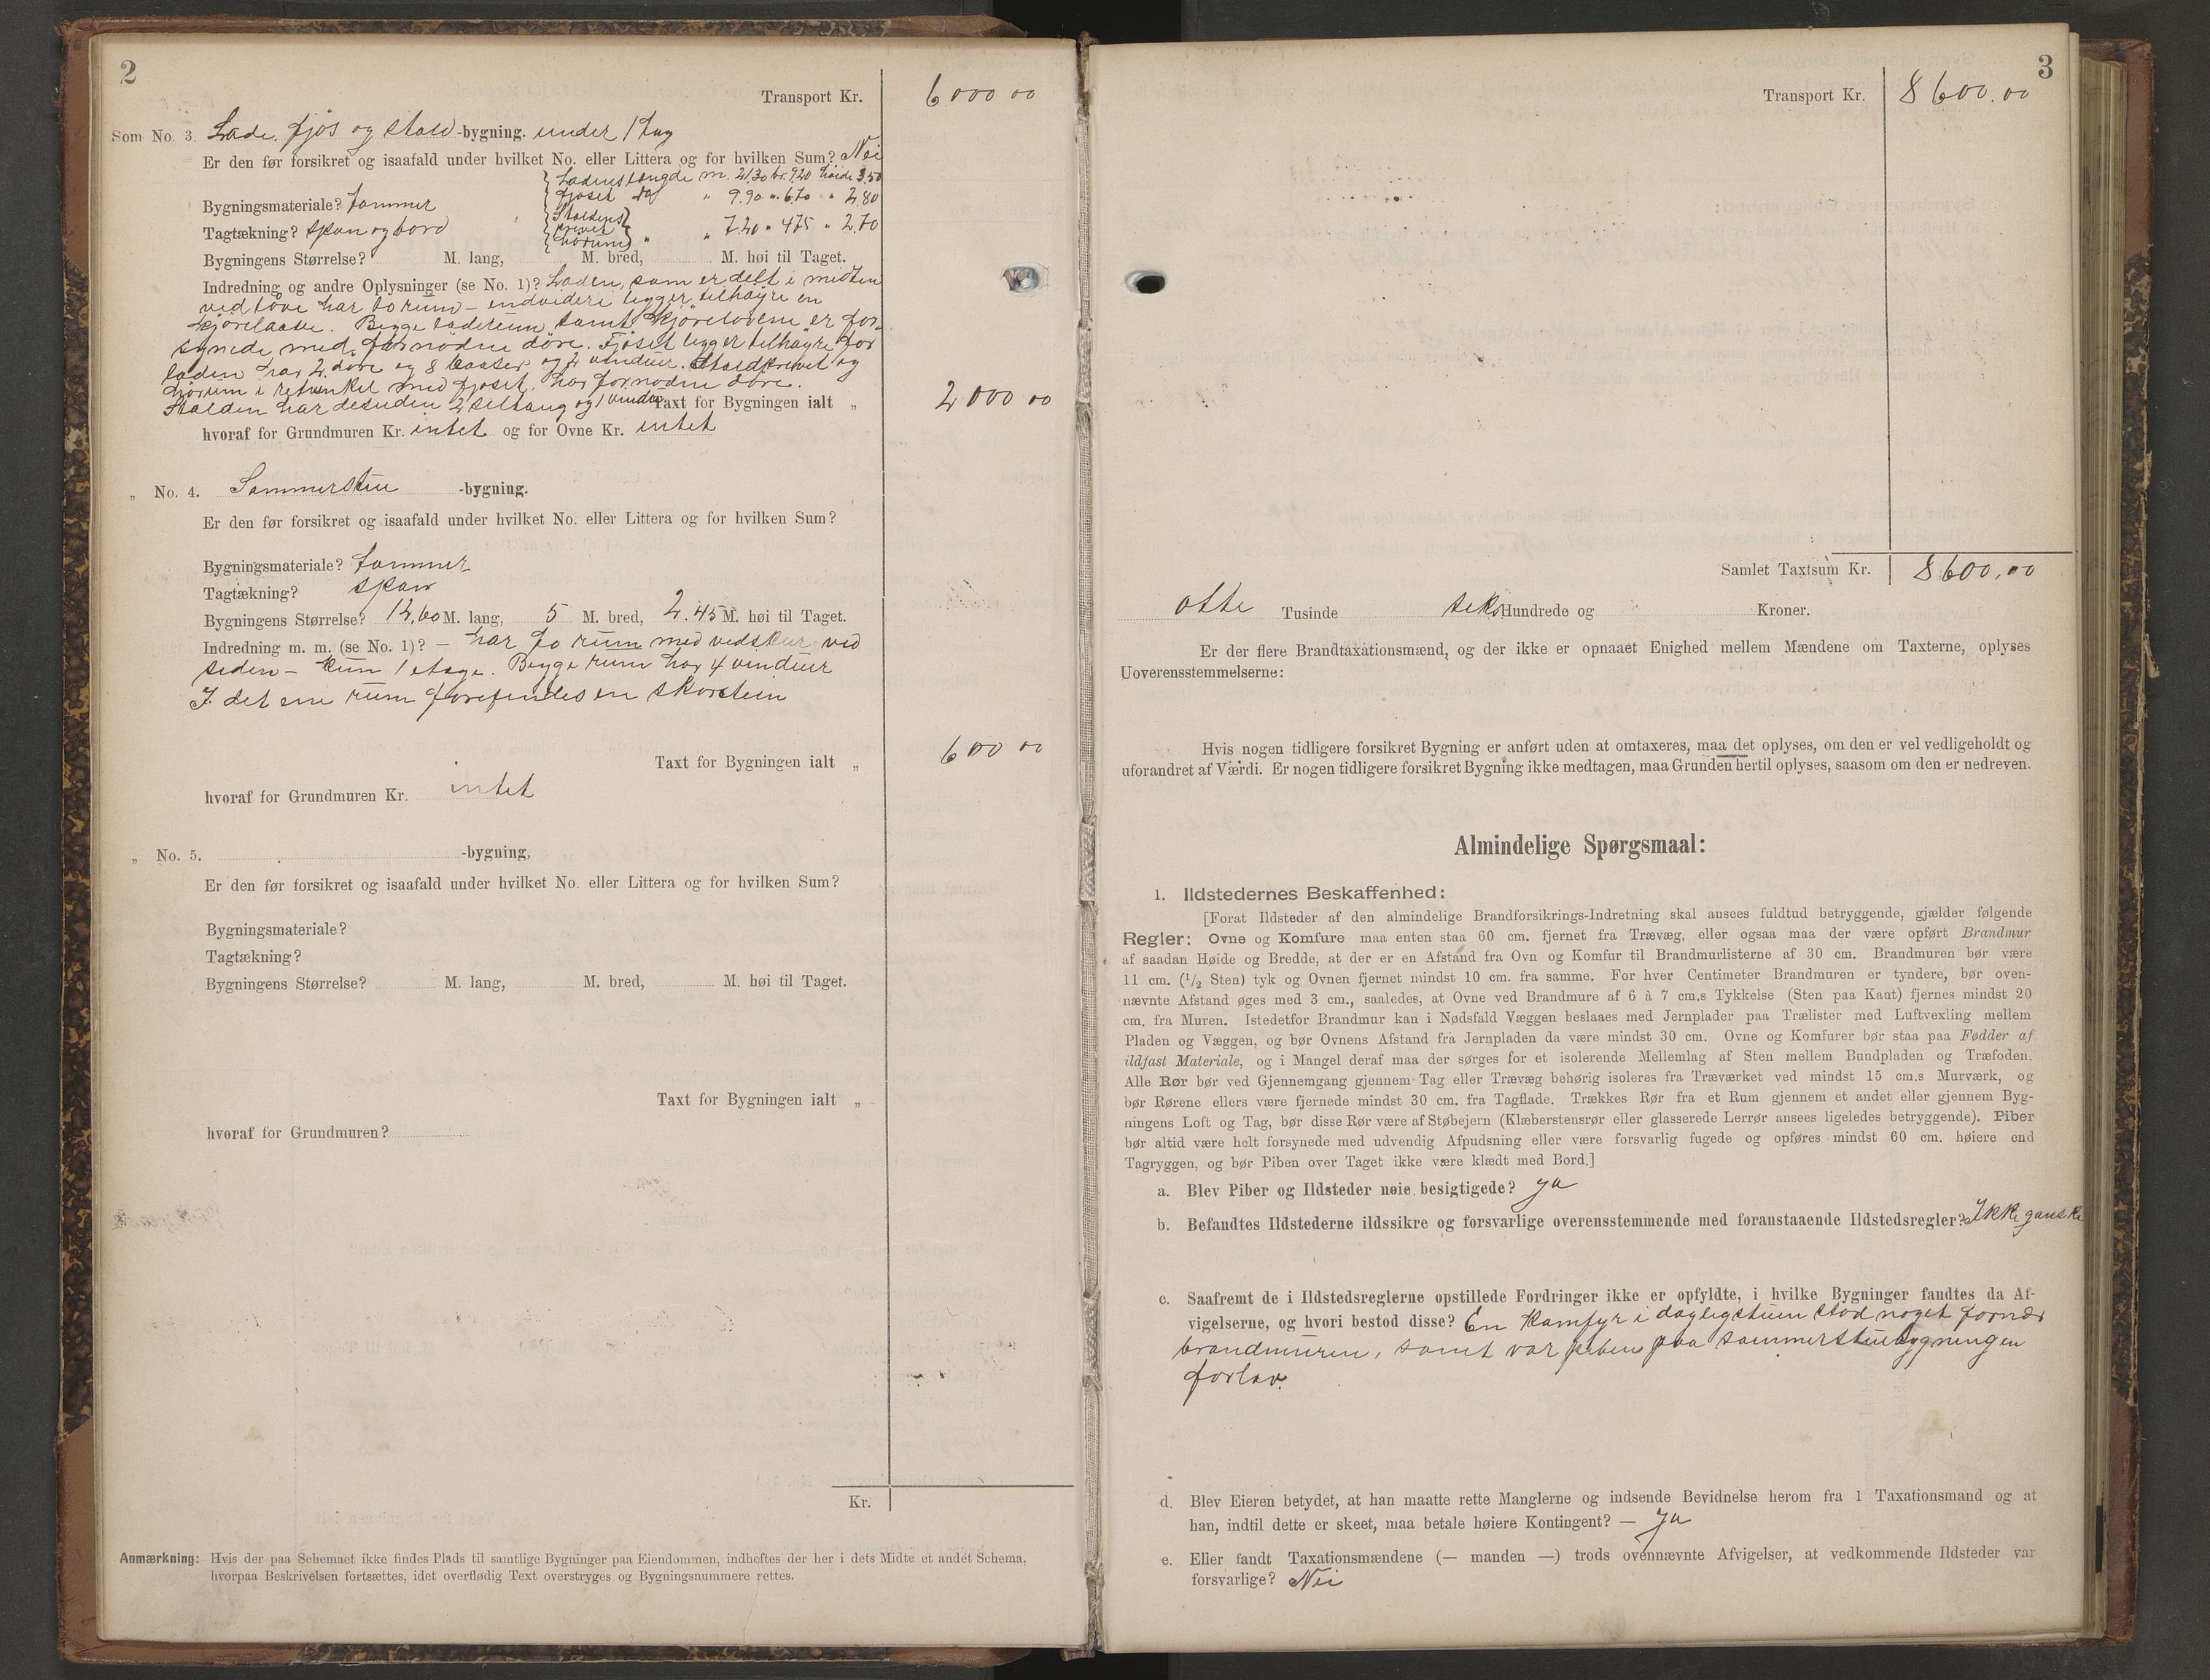 2
Transport Kr. 6000 00
Som No. 3. Lade, fjös og stald -bygning. under 1 tag
Er den før forsikret og isaafald under hvilket No. eller Littera og for hvilken Sum? Nei
Ladens længde m. 21,30 br. 9,20 höide 3.50
Bygningsmateriale? tømmer fjöset do " 9.90 " 6.70 " 2.80
Tagtækning? spon og bord Staldens " " 7.20 " 4.75 " 2.70
Bygningens Størrelse? M. lang, M. bred, M. høi til Taget.
Indredning og andre Oplysninger (se No. 1)? Laden, som er delt i midten
ved löve har to rum – endvidere ligger tilhøyre en
kjørelaave. Begge laderum samt kjørelovene er for-
synede med fornødne döre. Fjöset ligger tilhøyre for
laden har 2 döre og 8 baaser og 2 vinduer. Stald og
hörum i retvinkel med fjöset, har fornødne döre.
Stalden har desuden 2 og 1 vindu Taxt for Bygningen ialt „ 2000 00
hvoraf for Grundmuren Kr. intet og for Ovne Kr. intet
„ No. 4. Sommerstue -bygning.
Er den før forsikret og isaafald under hvilket No. eller Littera og for hvilken Sum?
Bygningsmateriale? tømmer
Tagtækning? spon
Bygningens Størrelse? 12,60 M. lang, 5 M. bred, 2.45 M. høi til Taget.
Indredning m. m. (se No. 1)? – har to rum med vedskur ved
siden – kun 1 etage. Begge rum har 4 vinduer
I det ene rum forefindes en skorstein
Taxt for Bygningen ialt „ 600 00
hvoraf for Grundmuren Kr. intet
„ No. 5. -bygning,
Er den før forsikret og isaafald under hvilket No. eller Littera og for hvilken Sum?
Bygningsmateriale?
Tagtækning?
Bygningens Størrelse? M. lang, M. bred, M. høi til Taget.
Taxt for Bygningen ialt „
hvoraf for Grundmuren?
Kr.
Anmærkning: Hvis der paa Schemaet ikke findes Plads til samtlige Bygninger paa Eiendommen, indheftes der her i dets Midte et andet Schema,
hvorpaa Beskrivelsen fortsættes, idet overflødig Text overstryges og Bygningsnummere rettes.
3
Transport Kr. 8600.00
Samlet Taxtsum Kr. 8600,00
otte Tusinde seks Hundrede og Kroner.
Er der flere Brandtaxationsmænd, og der ikke er opnaaet Enighed mellem Mændene om Taxterne, oplyses
Uoverensstemmelserne:
Hvis nogen tidligere forsikret Bygning er anført uden at omtaxeres, maa det oplyses, om den er vel vedligeholdt og
uforandret af Værdi. Er nogen tidligere forsikret Bygning ikke medtagen, maa Grunden hertil oplyses, saasom om den er nedreven.
Almindelige Spørgsmaal:
1. Ildstedernes Beskaffenhed:
[Forat Ildsteder af den almindelige Brandforsikrings-Indretning skal ansees fuldtud betryggende, gjælder følgende
Regler: Ovne og Komfure maa enten staa 60 cm. fjernet fra Trævæg, eller ogsaa maa der være opført Brandmur
af saadan Høide og Bredde, at der er en Afstand fra Ovn og Komfur til Brandmurlisterne af 30 cm. Brandmuren bør være
11 cm. (1/2 Sten) tyk og Ovnen fjernet mindst 10 cm. fra samme. For hver Centimeter Brandmuren er tyndere, bør oven-
nævnte Afstand øges med 3 cm., saaledes, at Ovne ved Brandmure af 6 à 7 cm.s Tykkelse (Sten paa Kant) fjernes mindst 20
cm. fra Muren. Istedetfor Brandmur kan i Nødsfald Væggen beslaaes med Jernplader paa Trælister med Luftvexling mellem
Pladen og Væggen, og bør Ovnens Afstand fra Jernpladen da være mindst 30 cm. Ovne og Komfurer bør staa paa Fødder af
ildfast Materiale, og i Mangel deraf maa der sørges for et isolerende Mellemlag af Sten mellem Bundpladen og Træfoden.
Alle Rør bør ved Gjennemgang gjennem Tag eller Trævæg behørig isoleres fra Træværket ved mindst 15 cm.s Murværk, og
bør Rørene ellers være fjernede mindst 30 cm. fra Tagflade. Trækkes Rør fra et Rum gjennem et andet eller gjennem Byg-
ningens Loft og Tag, bør disse Rør være af Støbejern (Klæberstensrør eller glasserede Lerrør ansees ligeledes betryggende). Piber
bør altid være helt forsynede med udvendig Afpudsning eller være forsvarlig fugede og opføres mindst 60 cm. høiere end
Tagryggen, og bør Piben over Taget ikke være klædt med Bord.]
a. Blev Piber og Ildsteder nøie besigtigede? ja
b. Befandtes Ildstederne ildssikre og forsvarlige overensstemmende med foranstaaende Ildstedsregler? Ikke ganske
c. Saafremt de i Ildstedsreglerne opstillede Fordringer ikke er opfyldte, i hvilke Bygninger fandtes da Af-
vigelserne, og hvori bestod disse? En Kamfyr i dagligstuen stod noget fornær
brandmuren, samt var piben paa sommerstuebygningen
forlav.
d. Blev Eieren betydet, at han maatte rette Manglerne og indsende Bevidnelse herom fra 1 Taxationsmand og at
han, indtil dette er skeet, maa betale høiere Kontingent? — Ja
e. Eller fandt Taxationsmændene (— manden —) trods ovennævnte Afvigelser, at vedkommende Ildsteder var
forsvarlige? Nei